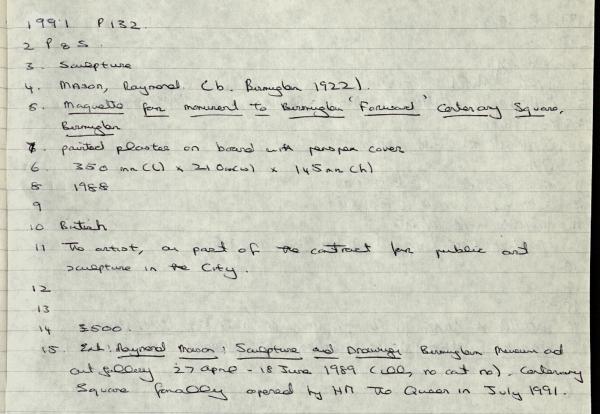 1991 P132.
2 P & S.
3. Sculpture
4. MASON, Raymond. (b. Birmingham 1922).
5. Maquette for monument to Birmingham 'Forward' Centenary Square,
Birmingham
7. painted plaster on board with perspex cover
6 350 mm (L) x 210mm(w) x 145mm (h)
8 1988
9
10 British
11 The artist, as part of the contract for public art
sculpture in the City.
12
13
14 £500.
15. Exh: Raymond Mason; Sculpture and Drawings Birmingham Museum and
art gallery 27 April - 18 June 1989 (ill, no cat no). Centenary
Square formally opened by HM The Queen in July 1991.